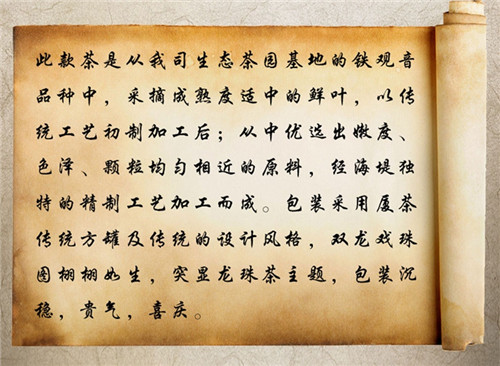 此款茶是从我司生态茶园基地的铁观音
品种中，采摘成熟度适中的鲜叶，以传
统工艺初制加工后；从中优选出嫩度、
色泽、颗粒均匀相近的原料，经海堤独
特的精制工艺加工而成。包装采用厦茶
传统方罐及传统的设计风格，双龙戏珠
图栩栩如生，突显龙珠茶主题，包装沉
稳，贵气，喜庆。